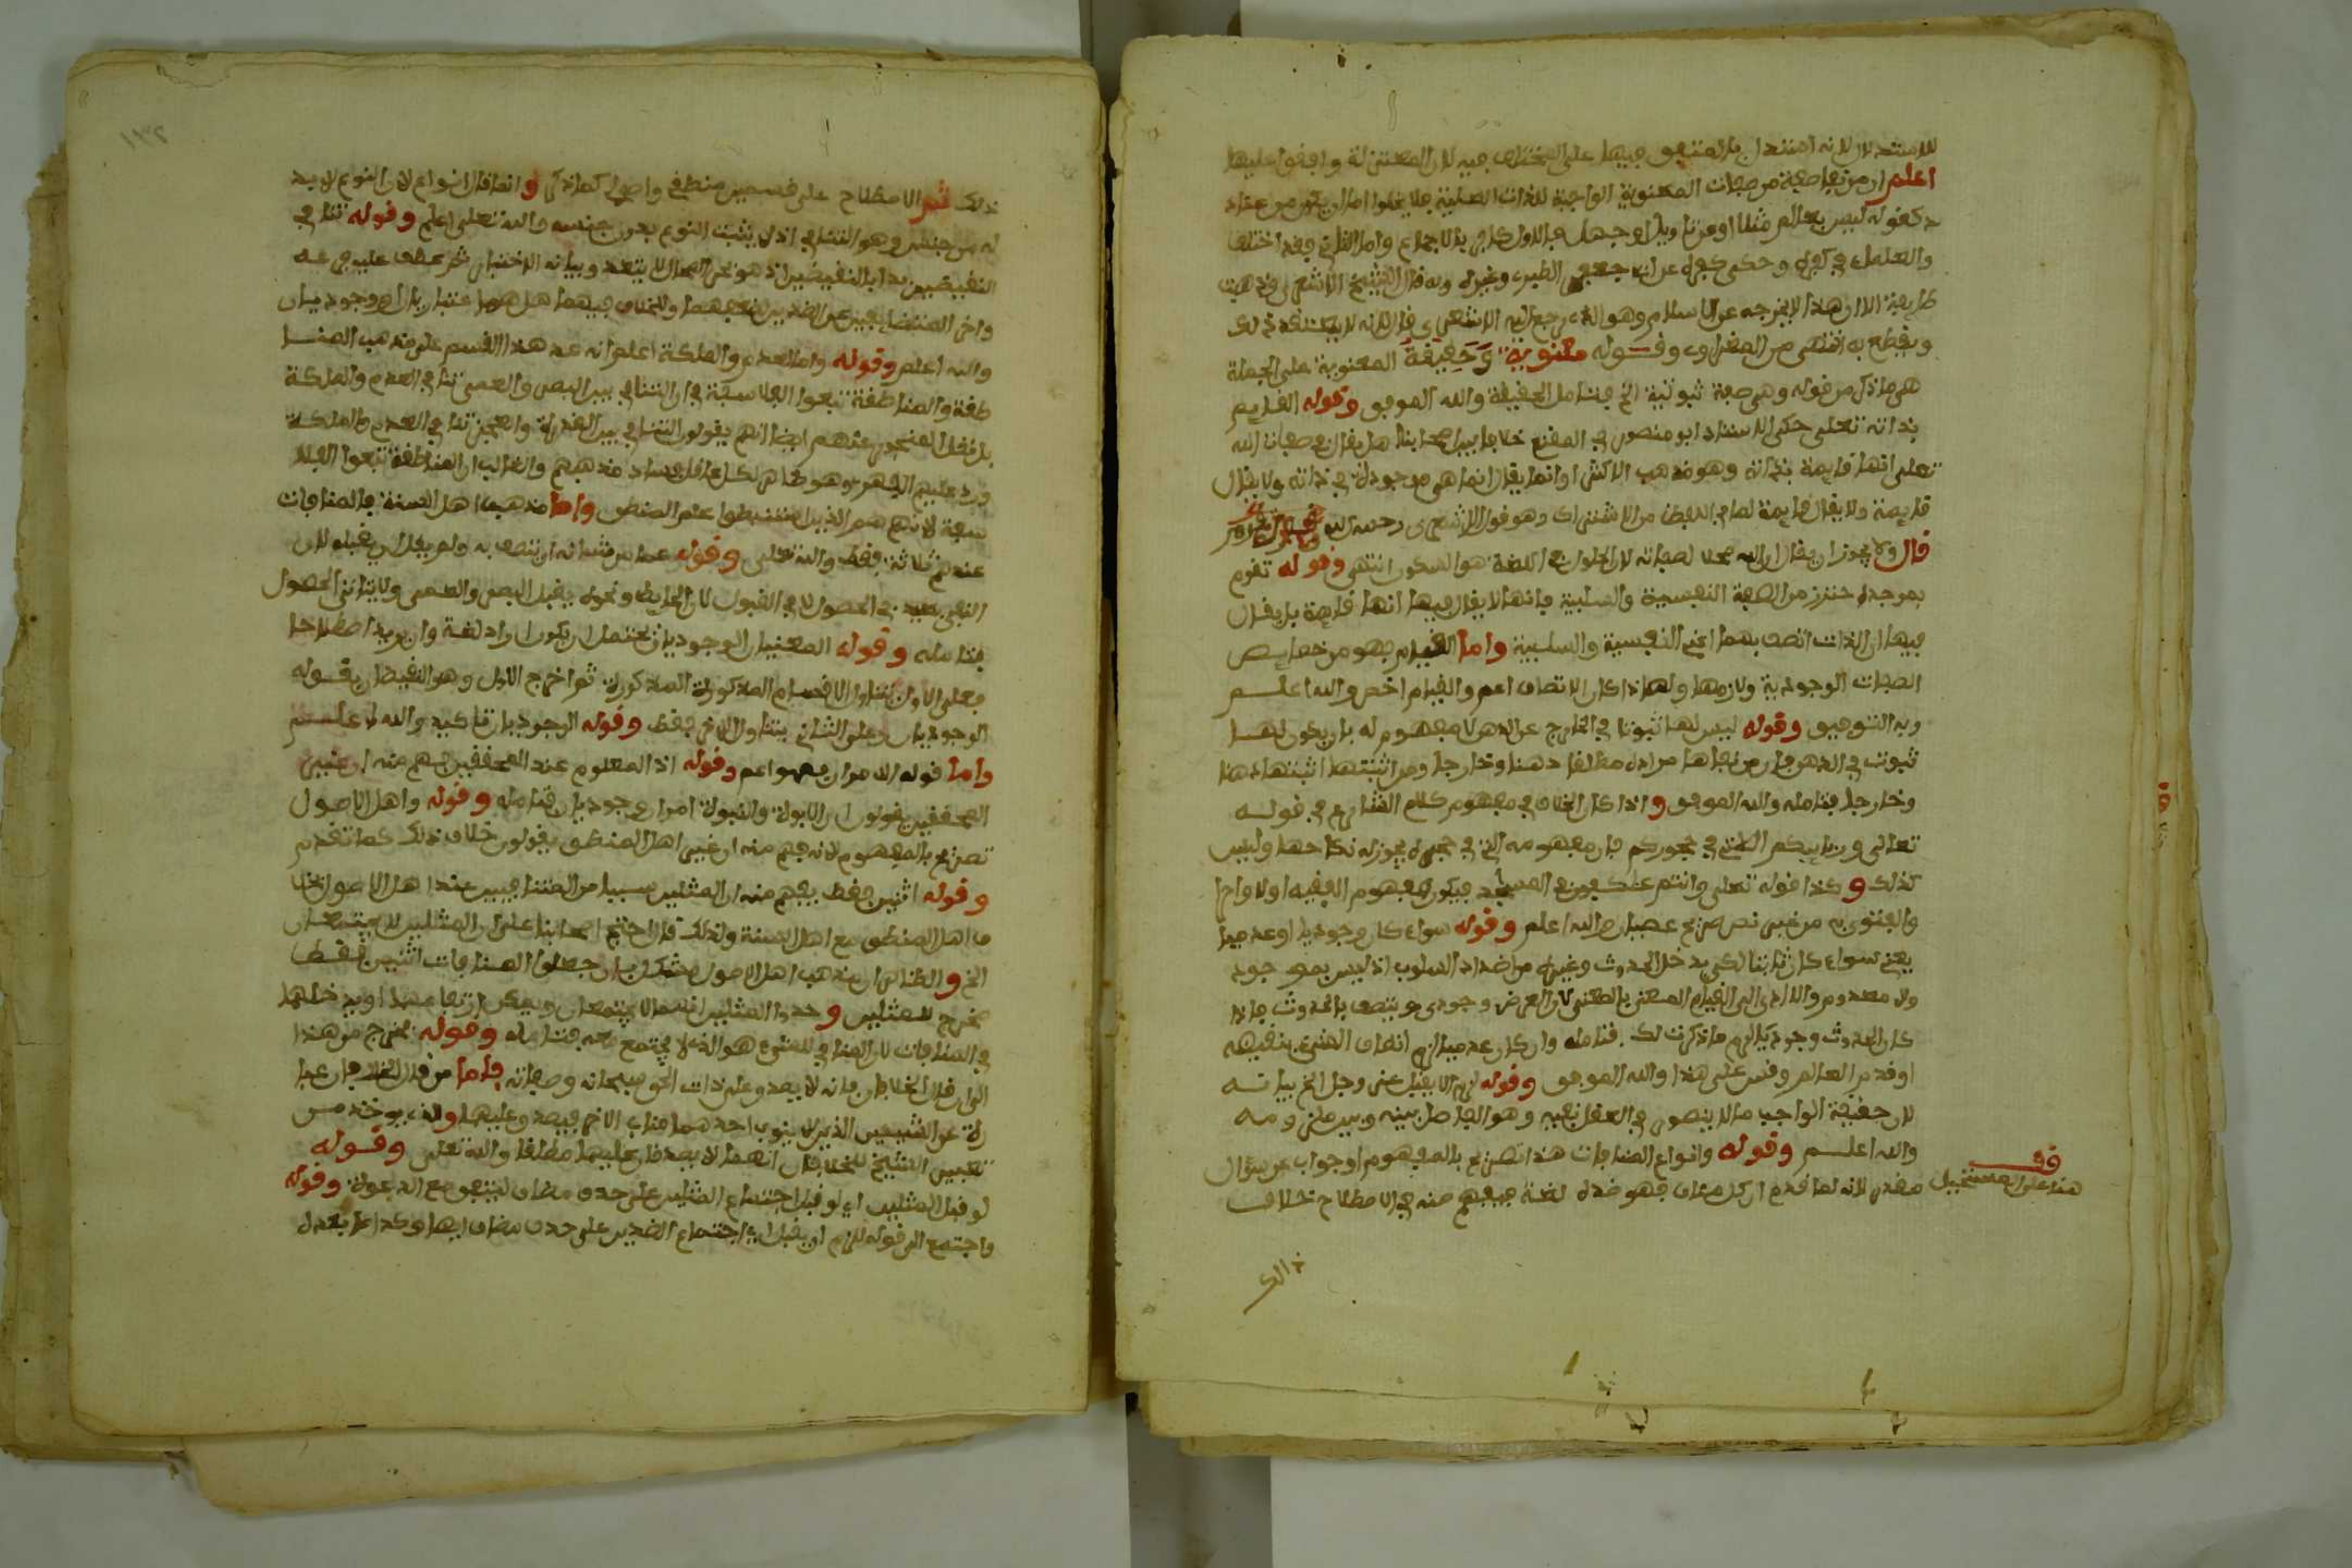 للاستدلال لانه استدلال بالمتفق فيها على المختلف فيه لان المعتزلة وافقوا عليها
اعلم ان من نفى صفة من صفات المعنوية الواجبة للذات العلية فلا يخلوا اما ان يكون من عناد
كقوله ليس بعالم مثلا او عن تاويل او جهل فالاول كافر بالاجماع واما الثاني فقد اختلف
والعلماء في كفره وحكي كفره عن ابي جعفر الطبري وغيره وبه قال الشيخ الاشعري وذهبت
طايفة الا ان هذا لا يخرجه عن الاسلام وهو الذي رجع اليه الاشعري قال لانه لا يعتقد ذلك
ويقطع به انتهى من وقوله معنوية وحقيقة المعنوية على الجملة
هي ما ذكر من قوله وهي صفة ثبوتية الخ فتامل الحقيقة والله الموفق وقوله القديم
بذاته تعلى حكى الاستاد ابو منصور في المقنع خلافا بين اصحابنا هل يقال في صفات الله
تعلى انها قايمة بذاته وهو مذهب الاكثر او انما يقال انما هي موجودة في ذاته ولا يقال
قايمة ولا يقال قايمة لما في اللفظ من الاشتراك وهو قول الاشعري رحمه الله
قال ولا يجوز ان يقال ان الله محلا لصفاته لان الحلول في اللغة هو السكون انتهى وقوله تقوم
بموجد احترز من الصفة النفسية والسلبية فانها لا يقال فيها انها قايمة بل يقال
فيها ان الذات اتصف بهما اعني النفسية والسلبية واما القيام فهو من خصايص
الصفات الوجودية ولازمها ولهذا كان الاتصاف اعم والقيام اخص والله اعلم
وبه التوفيق وقوله ليس لها ثبوتا في الخارج عن الذهن لا مفهوم له بان يكون لها
ثبوت في الذهن فان من نفاها مراده مطلقا ذهنا وخارجا ومن اثبتها اثبتها ذهنا
وخارجا فتامله والله الموفق واذا كان الخلاف في مفهوم كلام الشارع في قوله
تعالى وربايبكم التي في حجوركم فان مفهومه التي في غيره يجوز له نكاحها وليس
كذلك وكذا قوله تعلى وانتم عاكفون في المسجد فيكون مفهوم الفقيه اولا واحرا
والفتوى به من غير نص صريح عصيان والله اعلم وقوله سواء كان وجوديا او عدميا
يعني سواء كان ثابتا لكي يدخل الحدوث وغيره من اضداد السلوب اذ ليس بموجود
ولا معدوم والا ادى الى القيام المعنى بالمعنى لان العرض وجودي ويتصف بالحدوث فاذا
كان الحدوث وجوديا لزم ما ذكرت لك فتامله وان كان عدميا لزم اتصاف الشيء بنقيضه
او قدم العالم وقس على هذا والله الموفق وقوله لزم الا يقبل عز وجل الخ بيانه
لان حقيقة الواجب ما لا يتصور في العقل نفيه وهو الفاصل بينه وبين ملزومه
والله اعلم وقوله وانواع المنافات هذا تصريح بالمفهوم او جواب عن سؤال
مقدر لانه لما قدم ان كل مناف فهو ضده لغة فيفهم منه في الاصطلاح خلاف
قف
هنا على المستحيل
ذالك
ذلك ثم الاصطلاح على قسمين منطقي واصولي كما ذكر وانما قال انواع لان النوع لا بد
له من جنس وهو التنافي اذ لا يثبت النوع بدون جنسه والله تعلى اعلم وقوله تنافي
النقيضين بدا بالنقيضين اذ هو نحو المحال لا يتعدد وبيانه الاختبار ثم عطف عليه في عه
واخر المتضايفين عن الضدين لضعفهما وللخلاف فيهما هل هما اعتباريان او وجوديان
والله اعلم وقوله واما العدم والملكة اعلم انه عد هذا القسم على مذهب المنا
طقة والمناطقة تبعوا الفلاسفة في ان التنافي بين البصر والعمى تنافي العدم والملكة
بل نقل المنجور عنهم ايضا انهم يقولون التنافي بين القدرة والعجز تنافي العدم والملكة
ورد عليهم الفهري وهو ظاهر لكل عاقل بفساد مذهبهم والغالب ان المناطقة تبعوا الفلا
سفة لانهم هم الذين استنبطوا علم المنطق واما مذهب اهل السنة فالمنافات
عندهم ثلاثة فقط والله تعلى وقوله عما من شانه ان يتصف به ولم يقل ان يقبله لان
النفي يفيد في الحصول لا في القبول لان الحايط ونحوه يقبل البصر والعمى ولا يتاتى الحصول
فتامله وقوله المعنيان الوجوديان يحتمل ان يكون اراد لغة وان يريد اصطلاحا
فعلى الاول يتناول الاقسام المذكورة المذكورة ثم اخرج الاول وهو النقيضان بقوله
الوجوديان وعلى الثاني يتناول الاخر فقط وقوله الوجوديان تاكيد والله اعلم
واما قوله الامران فهو اعم وقوله اذ المعلوم عند المحققين يفهم منه ان غير
المحققين يقولون ان الابوة والنبوة امران وجوديان فتامله وقوله واهل الاصول
تصريح بالمفهوم لانه يفهم منه ان غير اهل المنطق يقولون خلاف ذلك كما تقدم
وقوله اثنين فقط يفهم منه ان المثلين ليسا من المتنافيين عند اهل الاصول خلا
ف اهل المنطق مع اهل السنة ولذلك قال احتج اصحابنا على ان المثلين لا يجتمعان
الخ والظاهر ان مذهب اهل الاصول مشكل بان جعلوا المنافات اثنين فقط
مخرج للمثلين وحدوا المثلين انهما لا يجتمعان ويمكن ارتفاعهما او يدخلها
في المنافات لان المنافي للشيء هو الذي لا يجتمع معه فتامله وقوله يخرج من هذا
الوان قال الخلافان فانه لا يصدق على ذات الحق سبحانه وصفاته واما من قال الخلافان عبا
رة عن الشيئين الذين لا ينوب احدهما مناب الاخر فيصدق عليها والذي يوخذ من
تعبير الشيخ للخلافان انهما لا يصدقان عليها مطلقا والله تعلى وقوله
لو قبل المثلين اي لو قبل اجتماع المثلين على حذف مضاف ليتفق مع الدعوة وقوله
واجتمع الى قوله للزم ان يقبل اي اجتماع الضدين على حذف مضاف ايضا وكذا ما بعده